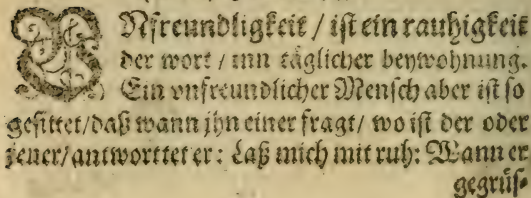 VNfreundligkeit / ist ein rauhigkeit
der wort / inn täglicher beywohnung.
Ein vnfreundlicher Mensch aber ist so
gesittet/daß wann jhn einer fragt/ wo ist der oder
jener/antworttet er: Laß mich mit ruh: Wann er
gegrüs⸗